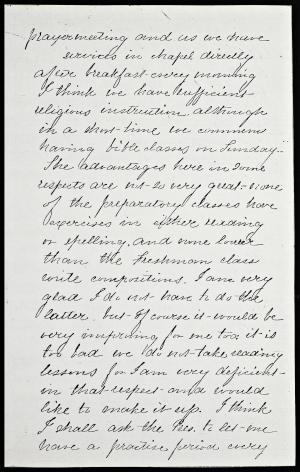 prayermeeting and as we have
services in chapel directly
after breakfast every morning
I think we have sufficient
religious instruction although
in a short time we commence
having bible classes on Sunday.
The advantages here in some
respects are not so very great - none
of the preparatory classes have
exercises in either reading
or spelling, and none lower
than the Freshman class
write compositions. I am very
glad I do not have to do the
latter but of course it would be
very improving for me too it is
too bad we do not take reading
lessons for I am very deficient
in that respect and would
like to make it up. I think
I shall ask the Pres. to let me
have a practise period every